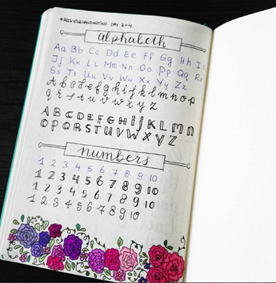 alphabeth
Aa Bb Cc Dd Ee Ff Gg Hh Ii
Jj Kk Ll Mm Nn Oo Pp Qq Rr
Ss Tt Uu Vv Ww Xx Yy Zz
A b c d e f g h i j k l m n o p
q r s t u v w x y z
A B C D E F G H I J K L M n
O P Q R S T U V W X Y Z
numbers
1 2 3 4 5 6 7 8 9 10
1 2 3 4 5 6 7 8 9 10
1 2 3 4 5 6 7 8 9 10
1 2 3 4 5 6 7 8 9 10